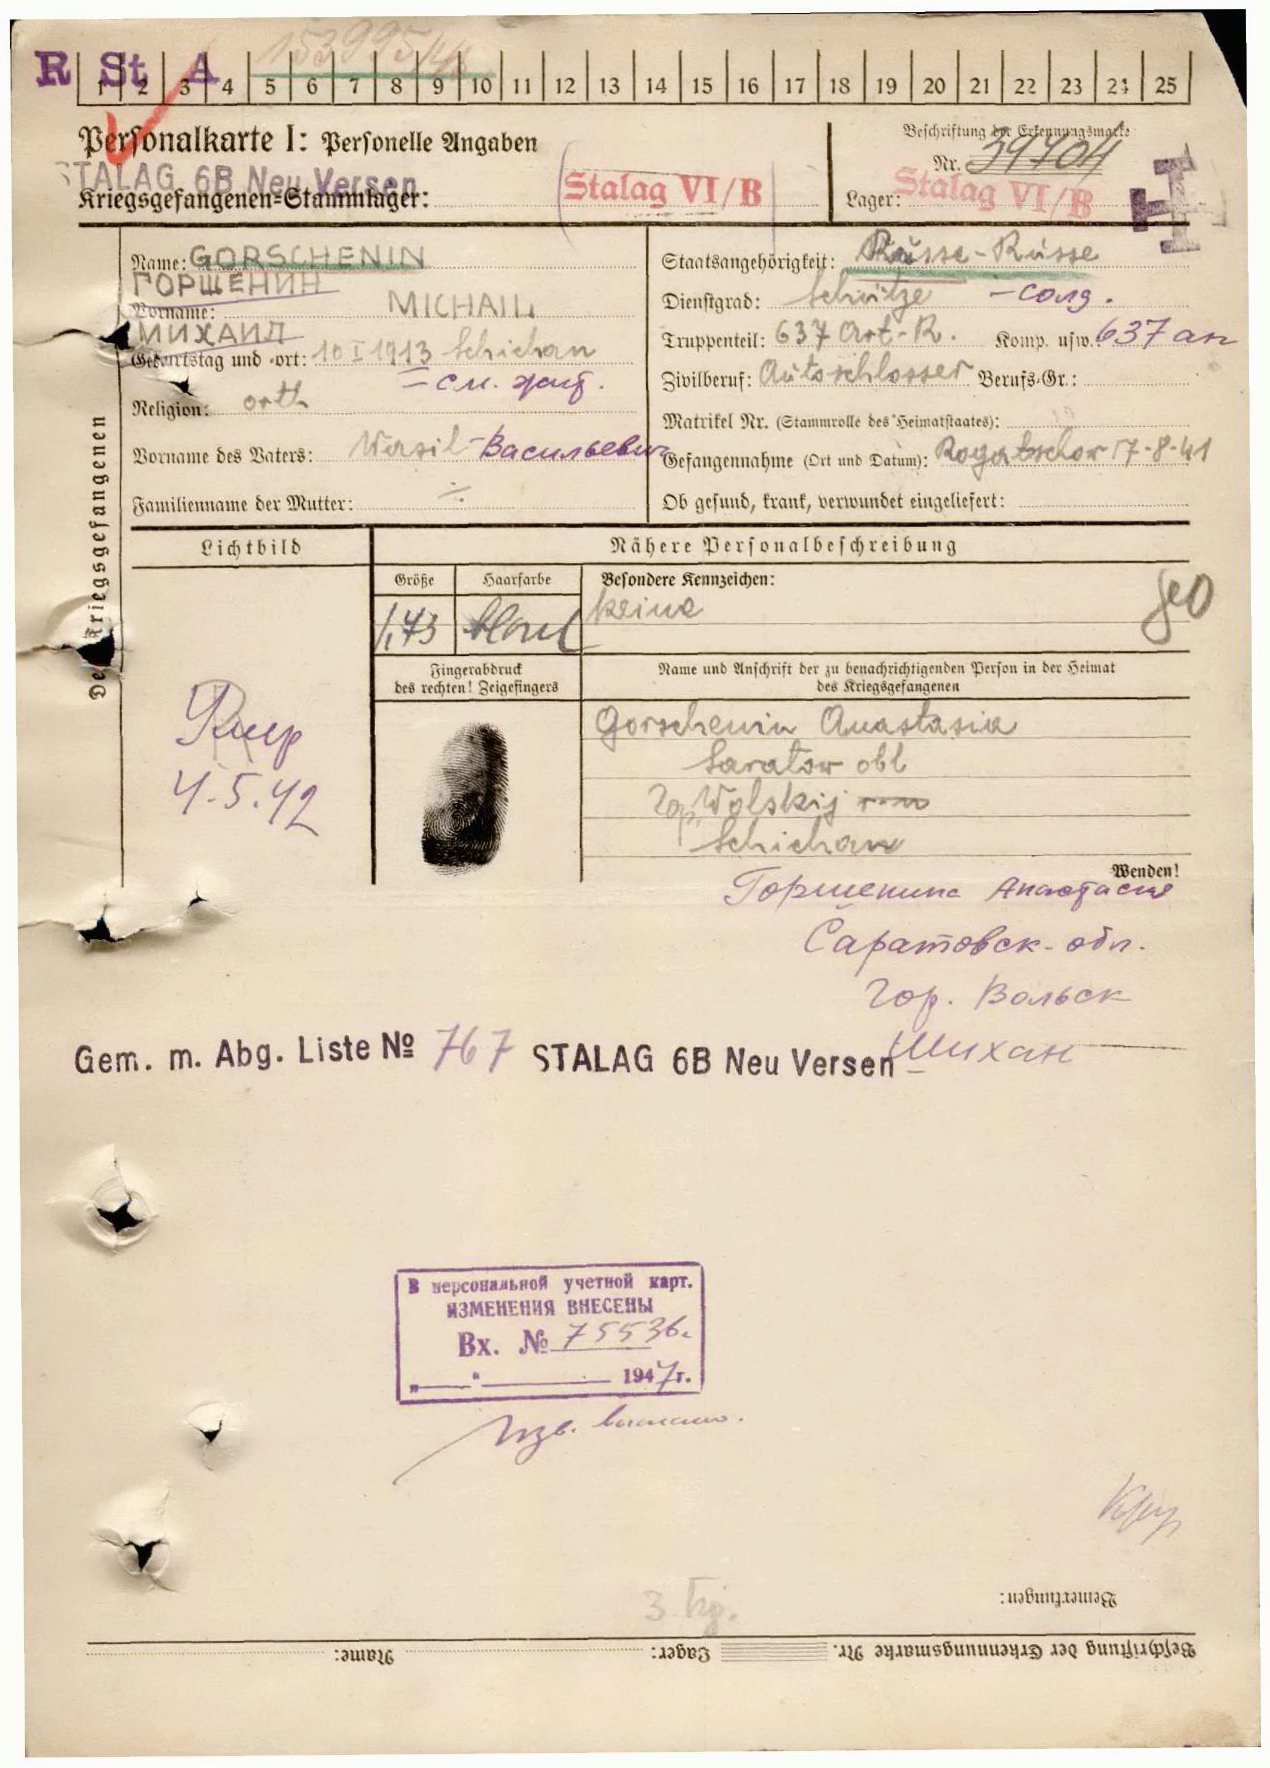 R St A
1 2 3 4 5 6 7 8 9 10 11 12 13 14 15 16 17 18 19 20 21 22 23 24 25
Personalkarte I: Personelle Angaben
Beschriftung der Erkennungsmarke
Nr. 39704
STALAG 6B Neu Versen
Kriegsgefangenen=Stammlager: Stalag VI/B
Lager: Stalag VI/B
Des Kriegsgefangenen
Name: GORSCHENIN
ГОРШЕНИН
Vorname: MICHAIL
МИХАИЛ
Geburtstag und -ort: 10 I 1913 Schichan
Religion: orth
Vorname des Vaters: Wasil - Васильевич
Familienname der Mutter: ÷
Staatsangehörigkeit: Russe - Russe
Dienstgrad: Schütze - солд.
Truppenteil: 637 Art-R. Komp. usw.: 637 ап
Zivilberuf: Autoschlosser Berufs-Gr.:
Matrikel Nr. (Stammrolle des Heimatstaates):
Gefangennahme (Ort und Datum): Rogatschow 17-8-41
Ob gesund, krank, verwundet eingeliefert:
Lichtbild
Nähere Personalbeschreibung
Größe
Haarfarbe
Besondere Kennzeichen:
1,73
blond
keine
Fingerabdruck
des rechten! Zeigefingers
Name und Anschrift der zu benachrichtigenden Person in der Heimat
des Kriegsgefangenen
4.5.42
Gorschenin Anastasia
Saratow obl
гор. Wolskij
Schichan
Wenden!
Горшенина Анастасия
Саратовск. обл.
Гор. Вольск
Шихан
Gem. m. Abg. Liste № 767 STALAG 6B Neu Versen
В персональной учетной карт.
ИЗМЕНЕНИЯ ВНЕСЕНЫ
Вх. № 75536
„ “ 1947г.
Bemerkungen:
Name: Lager: Beschriftung der Erkennungsmarke Nr.